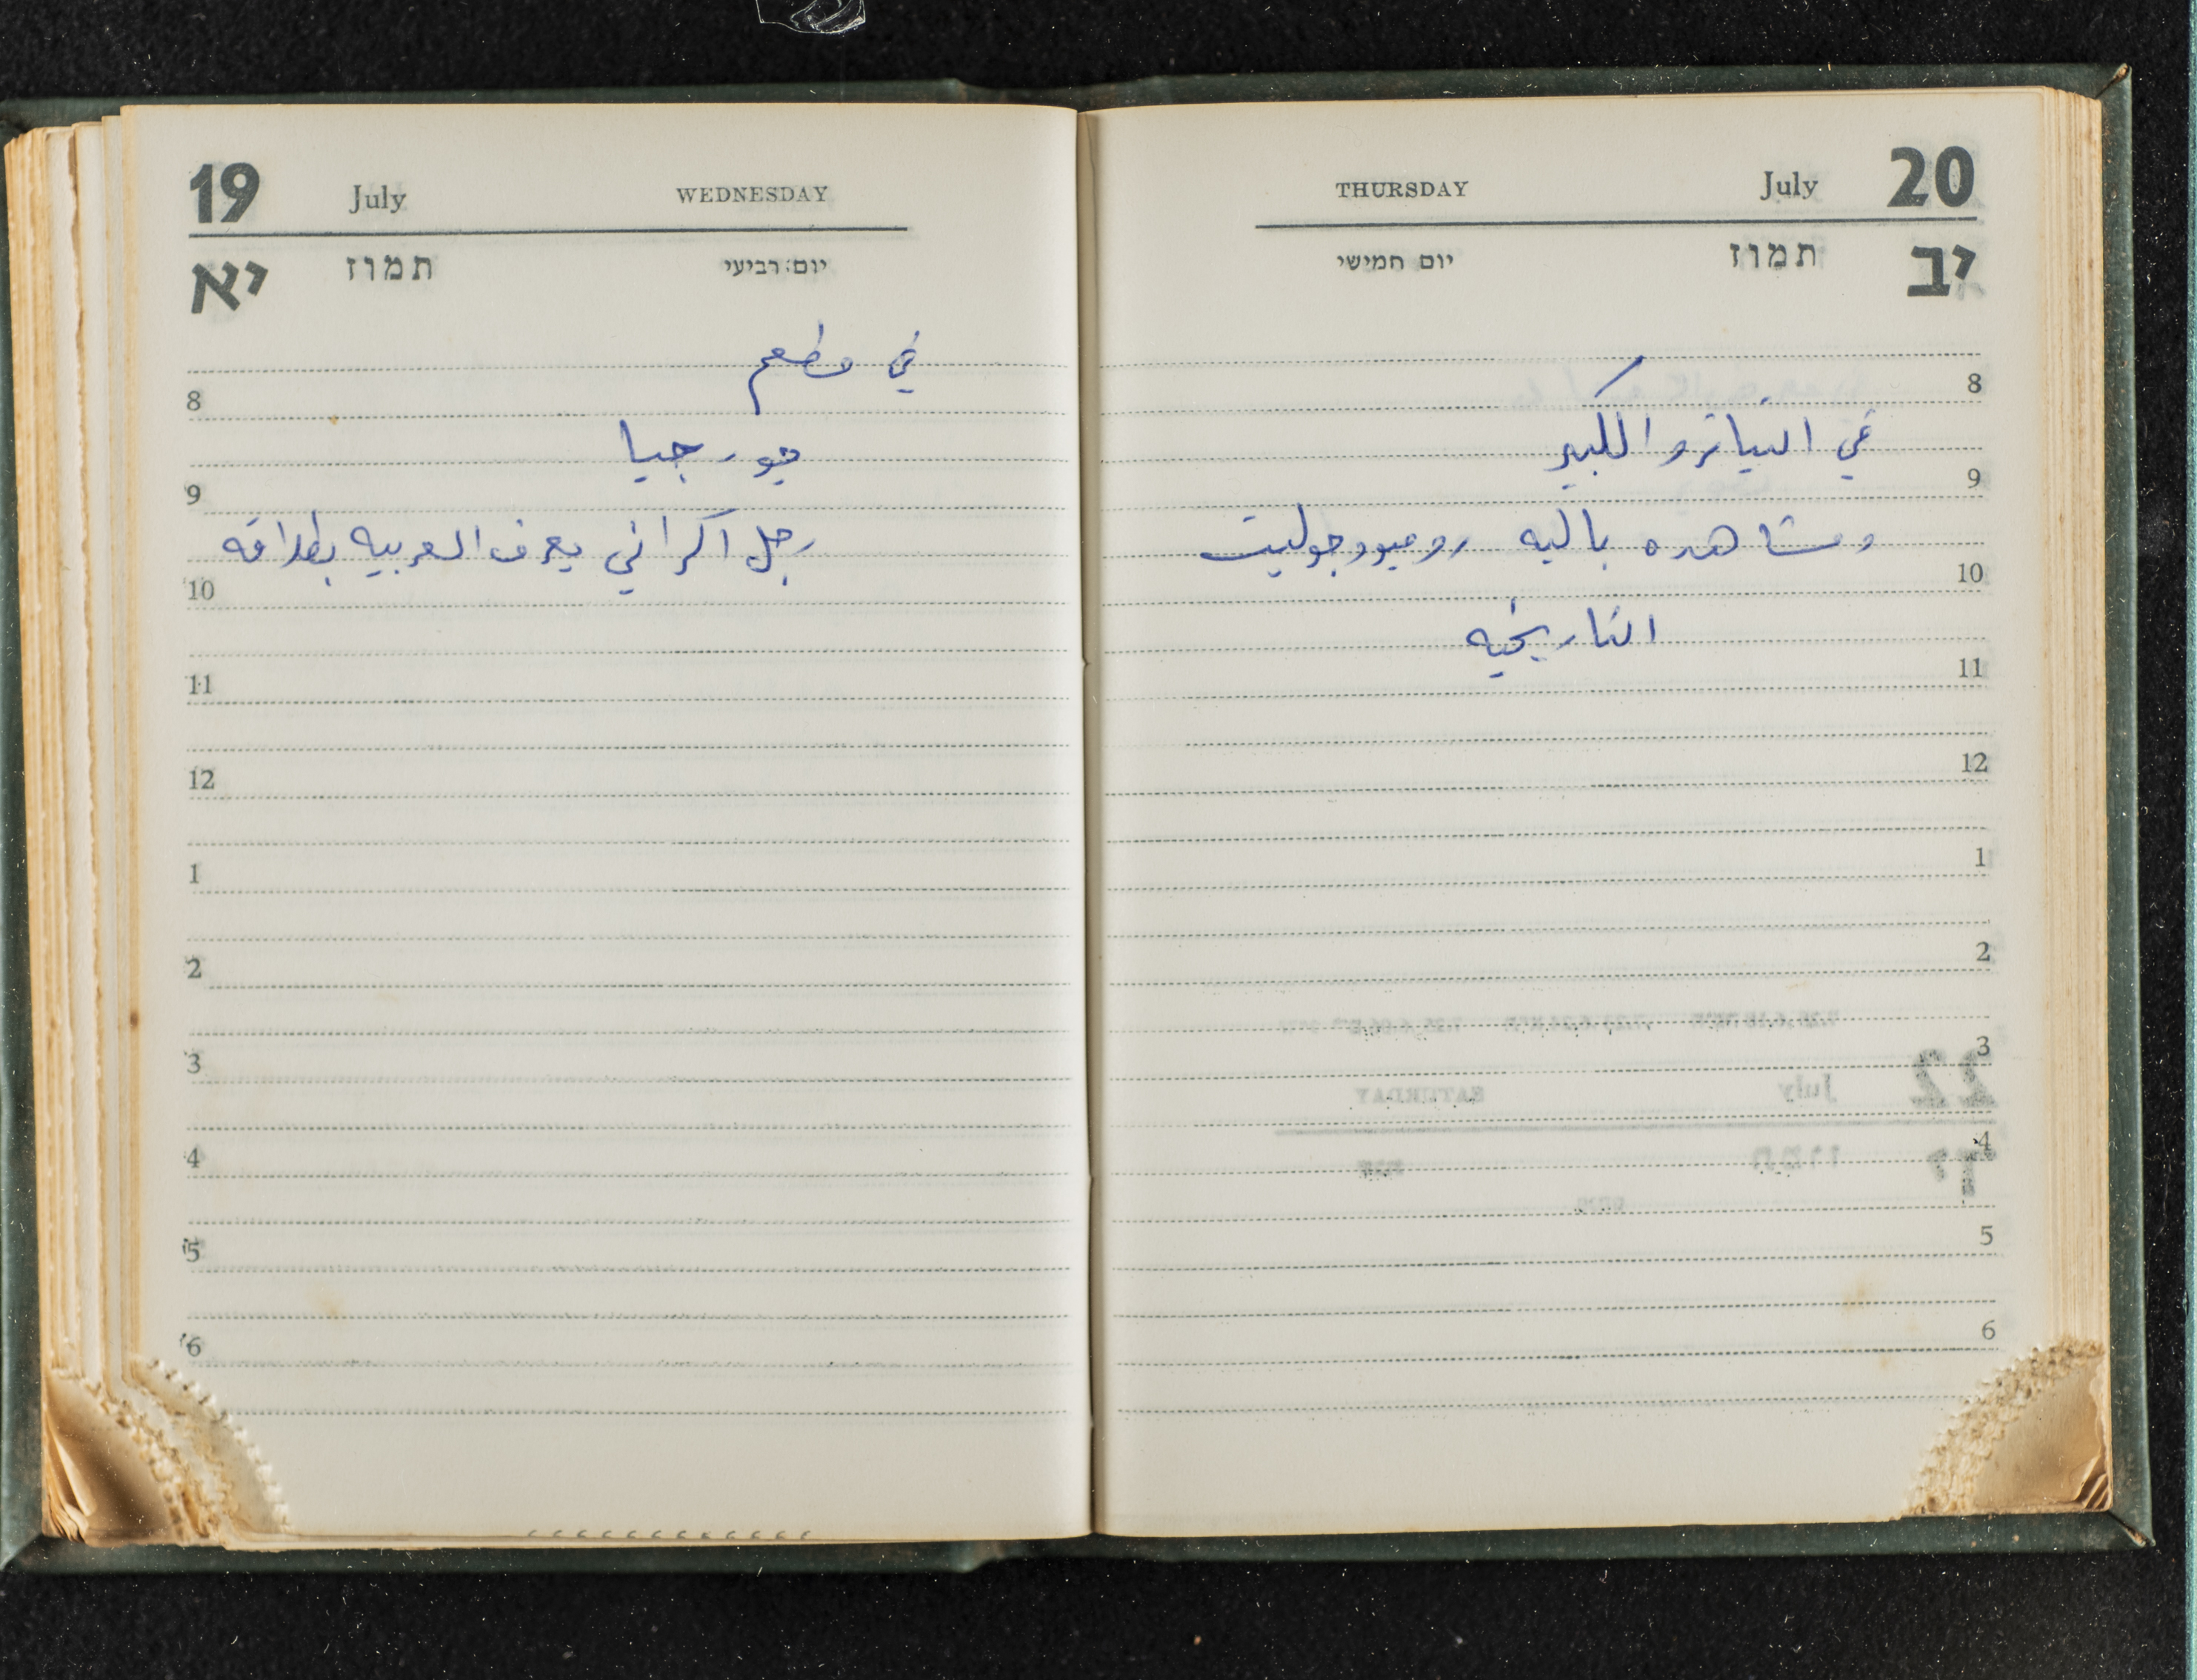 19 July WEDNESDAY
יא תמוז יום רביעי
في مطعم
8
جورجيا
9
رجل اكراني يعرف العربيه بطلاقه
10
11
12
1
2
3
4
5
6
THURSDAY July 20
יב תמוז יום חמישי
8
في التياترو الكبير
9
ومشاهده باليه روميو وجوليت
10
التاريخيه
11
12
1
2
3
4
5
6